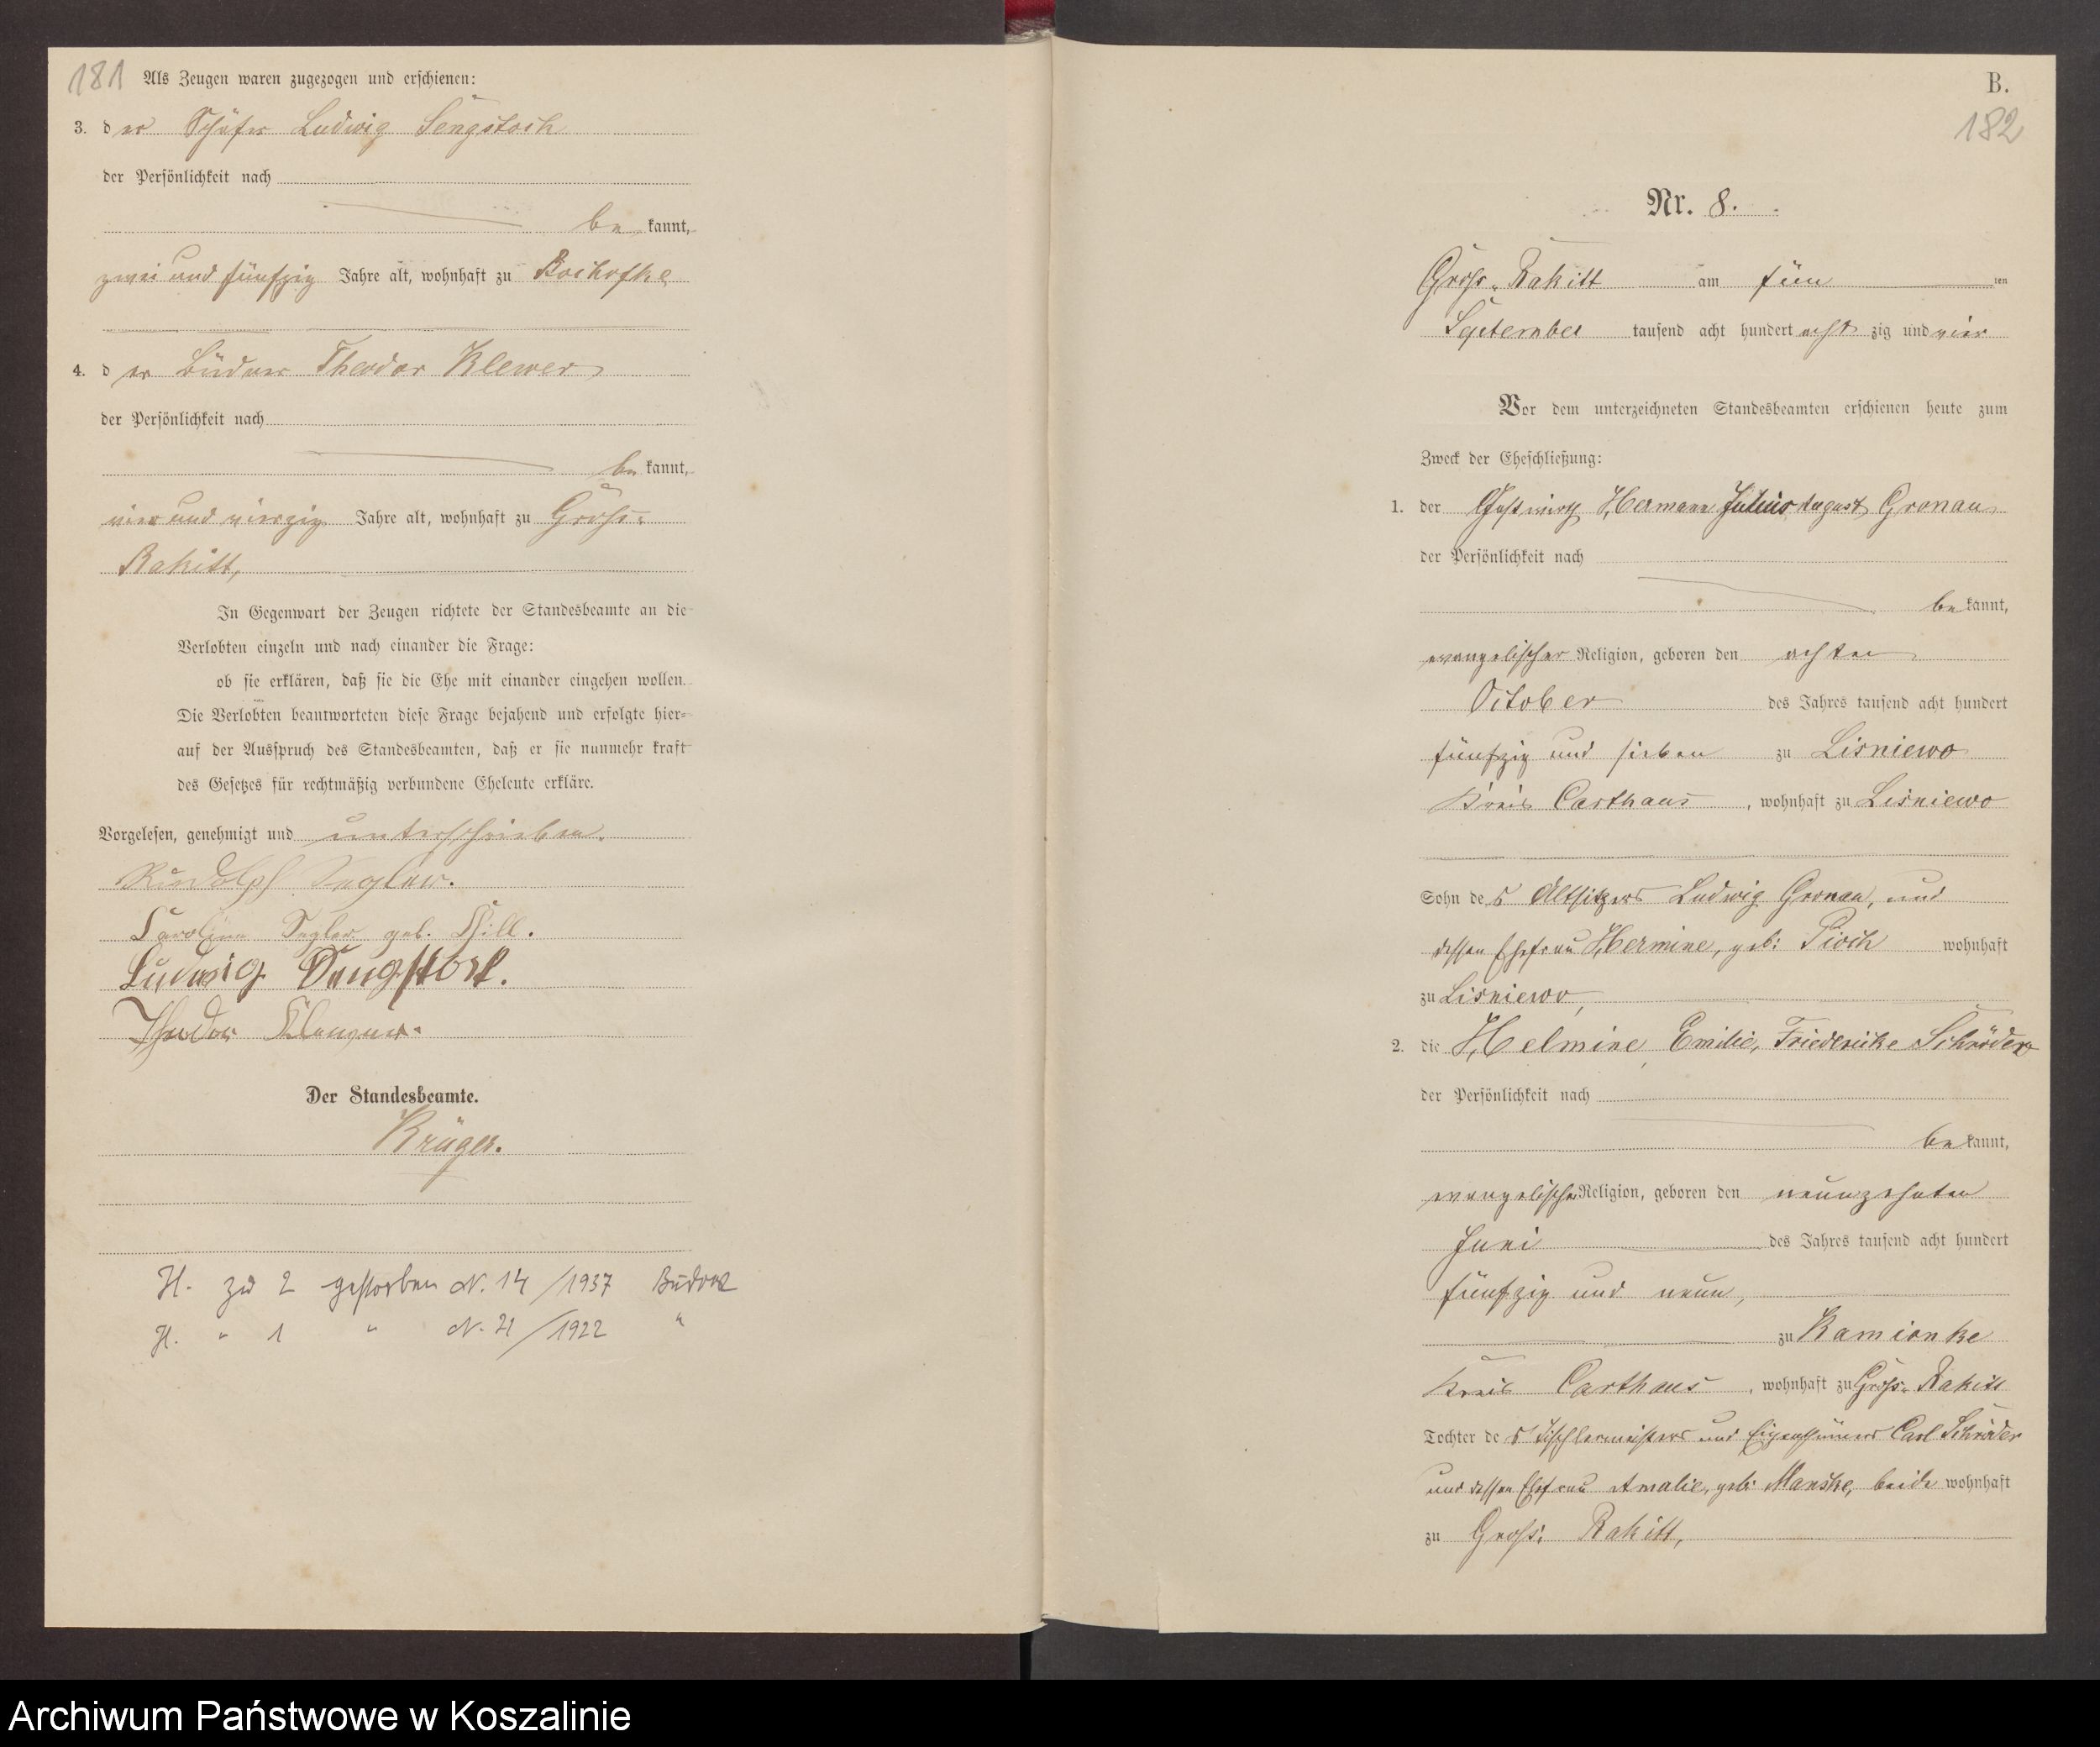 181 Als Zeugen waren zugezogen und erschienen:
3. der Schäfer Ludwig Sengstock
der Persönlichkeit nach
bekannt,
zwei und fünfzig Jahre alt, wohnhaft zu
4. der Büdner Theodor Klewer
der Persönlichkeit nach
bekannt,
vier und vierzig Jahre alt, wohnhaft zu Gross-
Rakitt,
In Gegenwart der Zeugen richtete der Standesbeamte an die
Verlobten einzeln und nach einander die Frage:
ob sie erklären, daß sie die Ehe mit einander eingehen wollen.
Die Verlobten beantworteten diese Frage bejahend und erfolgte hier-
auf der Ausspruch des Standesbeamten, daß er sie nunmehr kraft
des Gesetzes für rechtmäßig verbundene Eheleute erkläre.
Vorgelesen, genehmigt und unterschrieben.
Rudolph
geb.
Ludwig Sengstock.
Theodor
Der Standesbeamte.
Krüger.
H. zu 2 gestorben N. 14/1937 Budow
H. " 1 " N. 21/1922 "
B.
182
Nr. 8.
Gross-Rakitt am fünften
September tausend acht hundert achtzig und vier
Vor dem unterzeichneten Standesbeamten erschienen heute zum
Zweck der Eheschließung:
1. der Gastwirth Hermann Julius August Gronau
der Persönlichkeit nach
bekannt,
evangelischer Religion, geboren den achten
October des Jahres tausend acht hundert
fünfzig und sieben zu Lisniewo
Kreis Carthaus, wohnhaft zu Lisniewo
Sohn des Altsitzers Ludwig Gronau, und
dessen Ehefrau Hermine, geb: Pioch wohnhaft
zu Lisniewo,
2. die Helmine Emilie, Friedericke Schröder
der Persönlichkeit nach
bekannt,
evangelischer Religion, geboren den neunzehnten
Juni des Jahres tausend acht hundert
fünfzig und neun,
zu Kamionke
Kreis Carthaus, wohnhaft zu Gross-Rakitt
Tochter des Tischlermeisters und Eigenthümers Carl Schröder
und dessen Ehefrau Amalie, geb: Manske, beide wohnhaft
zu Gross: Rakitt,
Archiwum Państwowe w Koszalinie